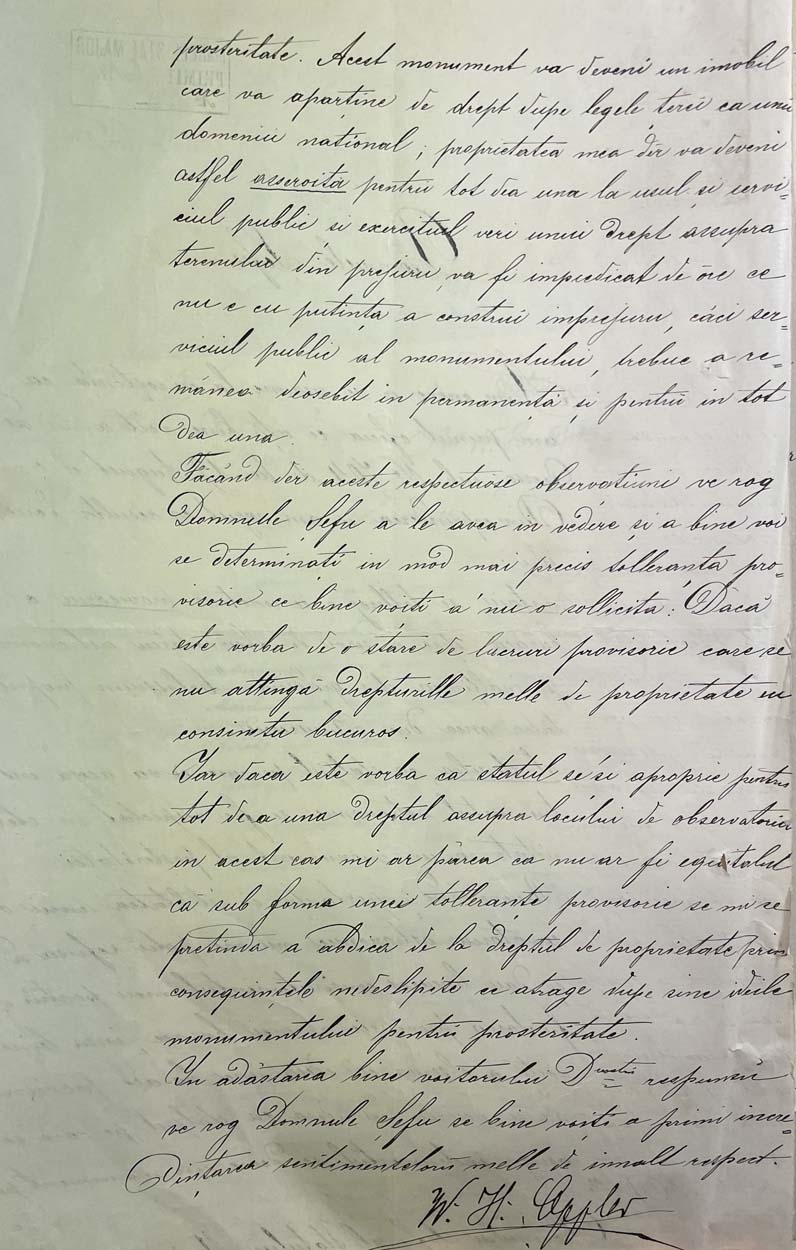 prosteritate. Acest monument va deveni un imobil
care va apartine de drept dupe legele țerii ca unui
domeniu national; proprietatea mea der va deveni
astfel asservita pentru tot dea una la usul și servi=
ciul public și exercitiul veri unui drept assupra
terenului din prejuru va fi impiedicat de óre ce
nu e cu putința a construi imprejuru, căci ser=
viciul public al monumentului, trebue a re=
mánea deosebit in permanență și pentru in tot
dea una.
Făcând der aceste respectuose observatiuni ve rog
Domnulle Șefu a le avea in vedere și a bine voi
se determinați in mod mai precis tolleranta pro=
visorie ce bine voiti a'mi o sollicita: Dacă
este vorba de o stare de lucruri provisorie care se
nu attingă drepturille melle de proprietate eu
consimtu bucuros.
Iar daca este vorba că statul se'si aproprie pentru
tot de a una dreptul assupra locului de observatoriu
in acest cas mi ar părea ca nu ar fi equitabil
că sub forma unei tolleranțe provisorie se mi se
pretinda a abdica de la dreptul de proprietate prin
consequințele nedeslipite ce atrage dupe sine ideile
monumentului pentru prosteritate.
In adăstarea bine voitorului Dvostru respunsu
ve rog Domnule Șefu se bine voiți a primi incre=
dințarea sentimentelorŭ melle de innalt respect.
W. H. Oppler